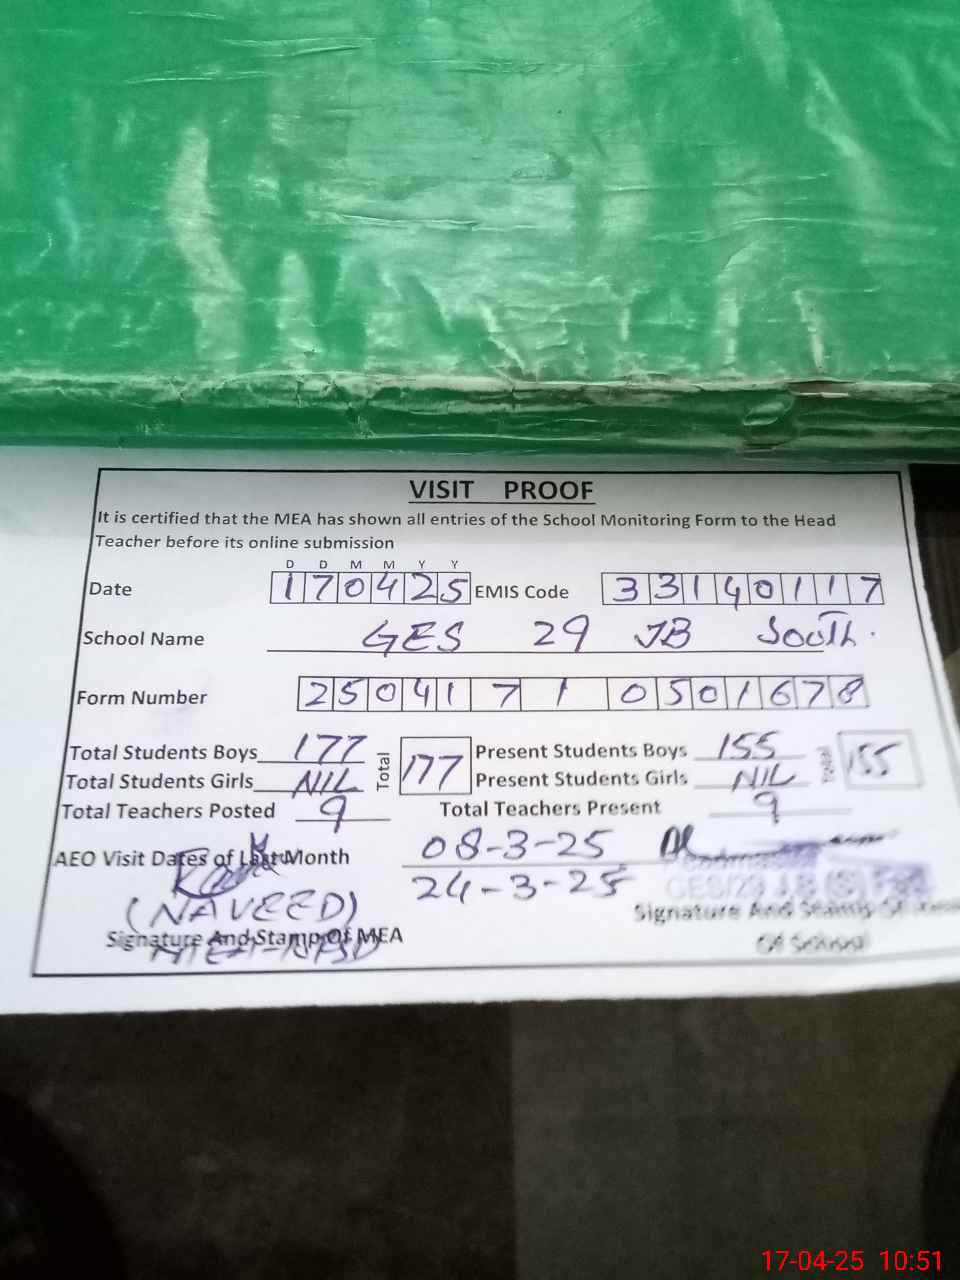 VISIT PROOF
It is certified that the MEA has shown all entries of the School Monitoring Form to the Head
Teacher before its online submission
D D M M Y Y
Date 170425 EMIS Code 33140117
School Name GES 29 JB South.
Form Number 25041710501678
Total Students Boys 177 Total 177 Present Students Boys 155 Total 155
Total Students Girls NIL Present Students Girls NIL
Total Teachers Posted 9 Total Teachers Present 9
AEO Visit Dates of Last Month 08-3-25
24-3-25
(NAVEED)
Signature And Stamp Of MEA
Signature And Stamp Of
Of School
17-04-25 10:51